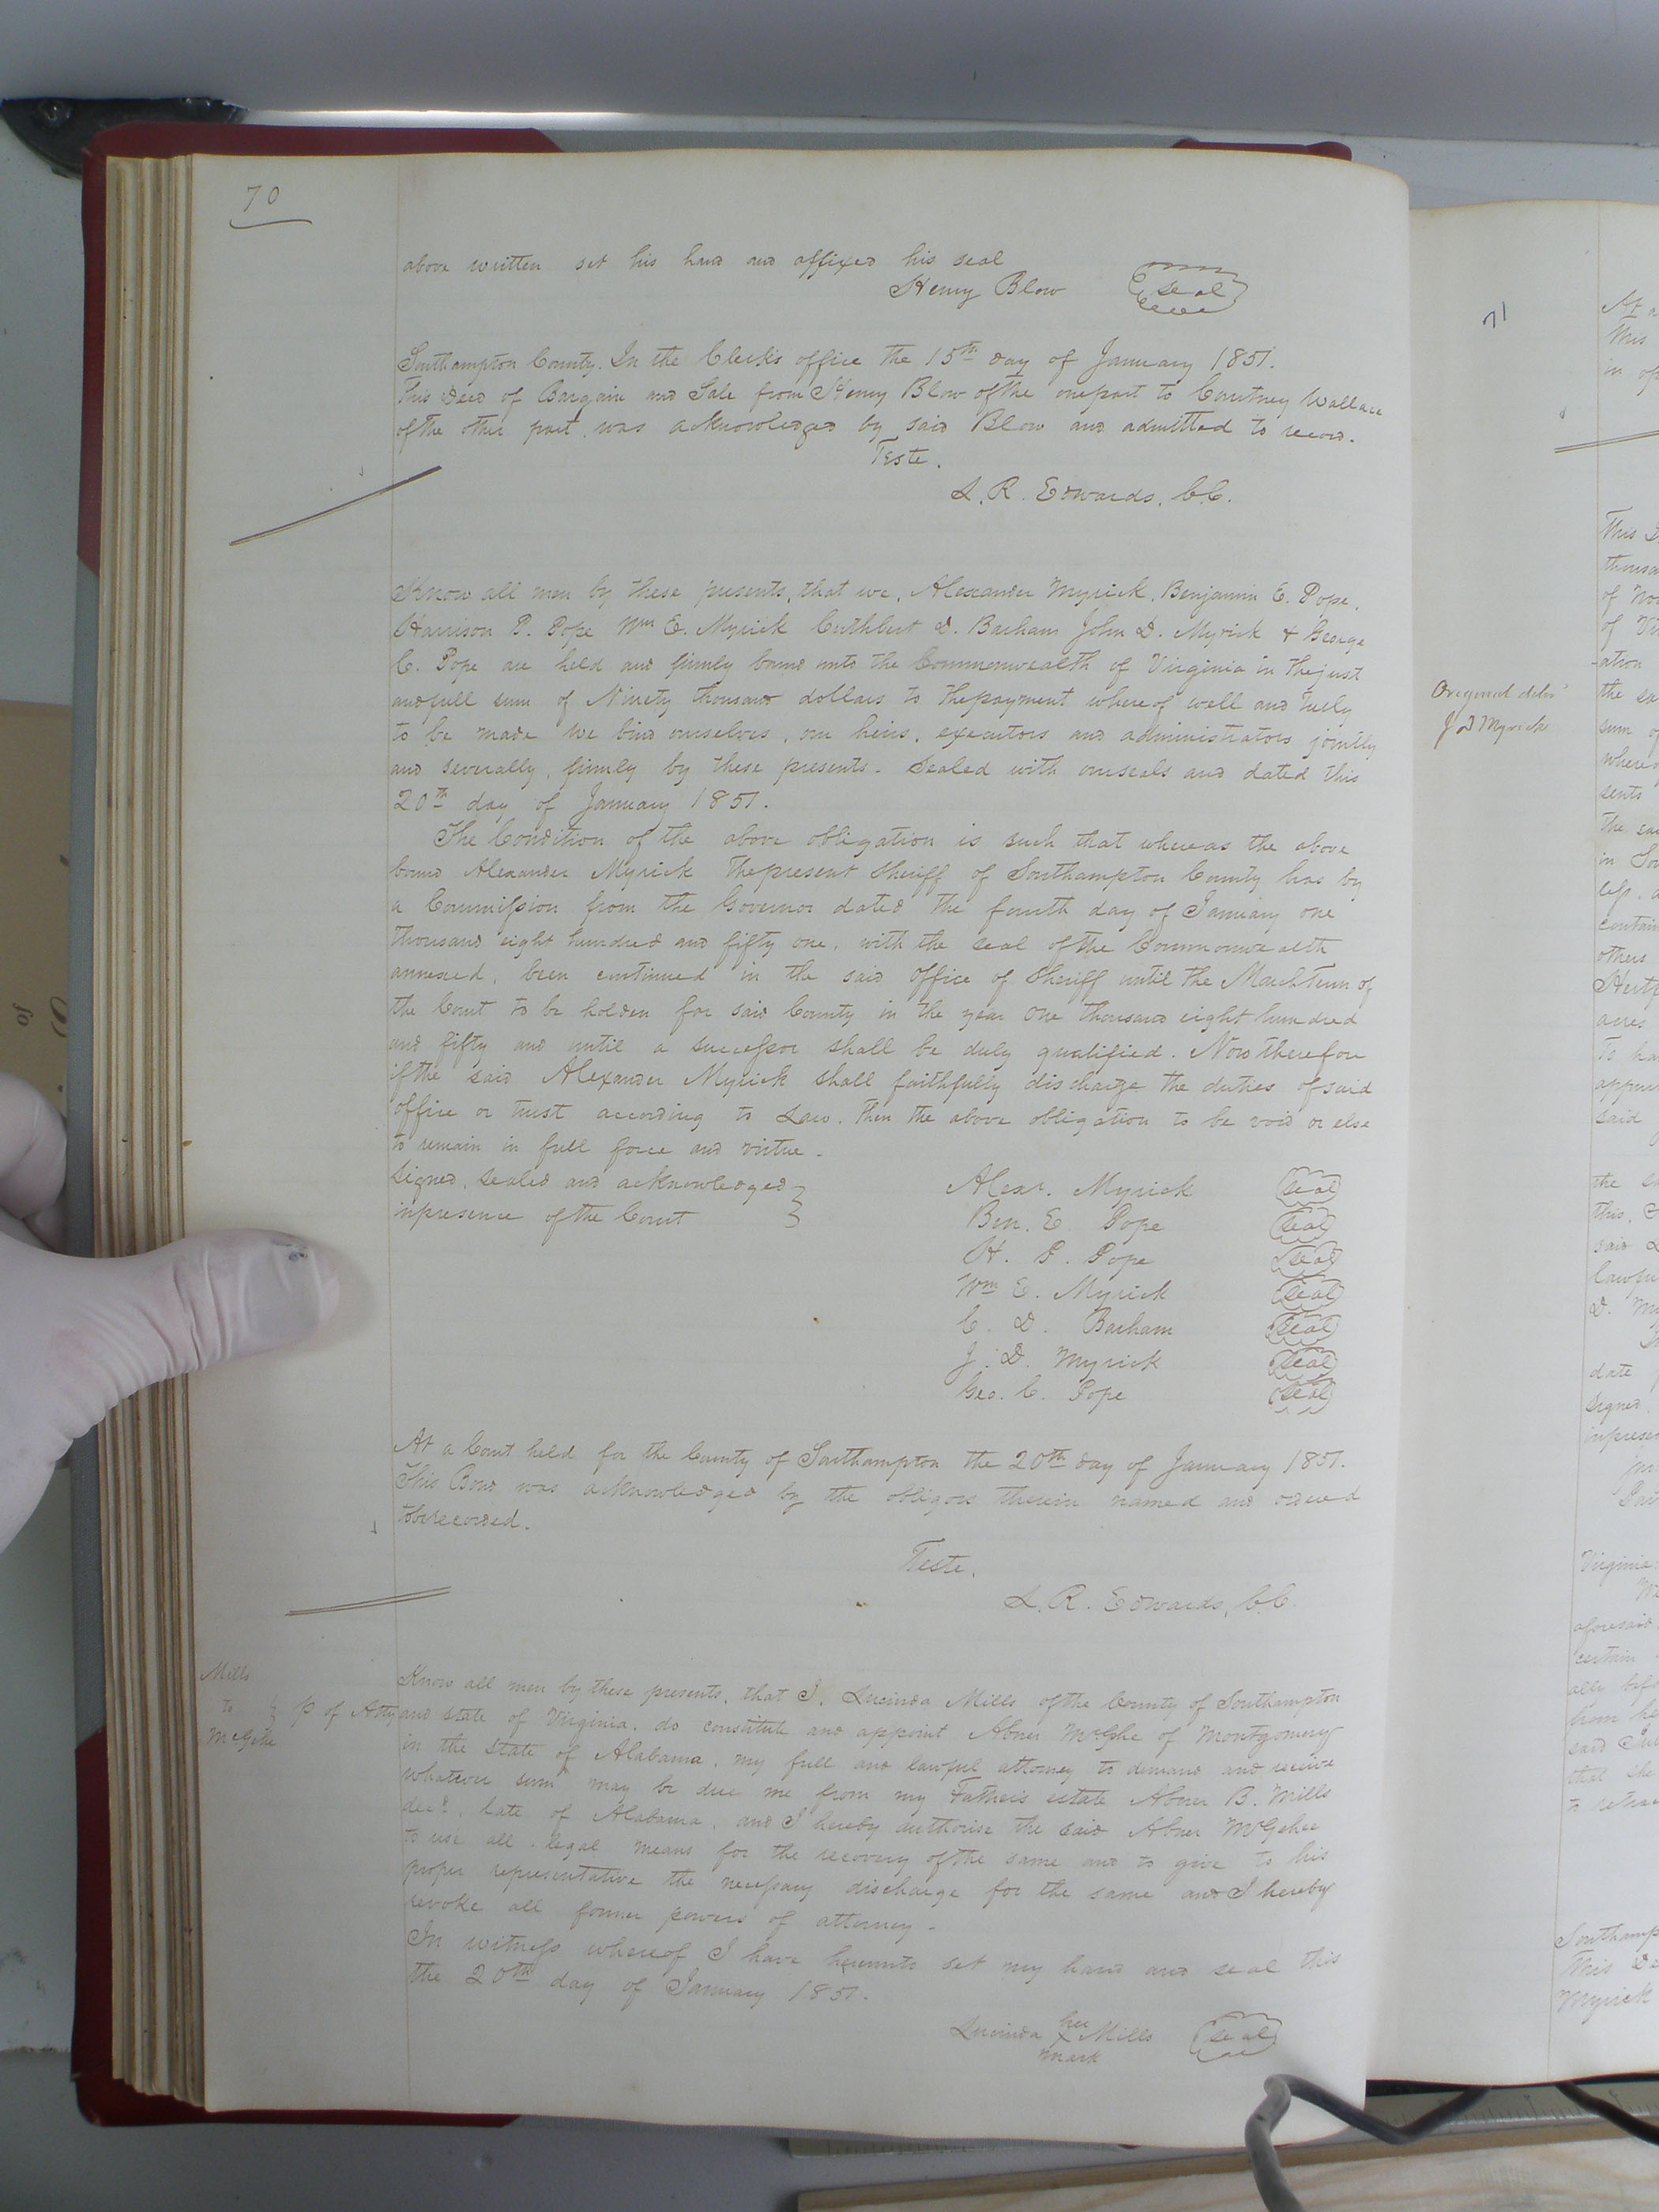 70
above written set his hand and affixed his seal
Henry Blow seal
Southampton County. In the Clerk's office the 15th day of January 1851.
This Deed of Bargain and Sale from Henry Blow of the one part to Courtney Wallace
of the other part, was acknowledged by said Blow and admitted to record.
Teste.
L. R. Edwards, C.C.
Know all men by these presents, that we, Alexander Myrick, Benjamin E. Pope,
Harrison P. Pope Wm E. Myrick Cuthbert D. Barham John D. Myrick & George
C. Pope are held and firmly bound unto the Commonwealth of Virginia in the just
and full sum of Ninety thousand dollars to the payment whereof well and truly
to be made we bind ourselves, our heirs, executors and administrators jointly
and severally, firmly by these presents. Sealed with our seals and dated this
20th day of January 1851.
The Condition of the above obligation is such that whereas the above
bound Alexander Myrick the present Sheriff of Southampton County has by
a Commission from the Governor dated the fourth day of January one
thousand eight hundred and fifty one, with the seal of the Commonwealth
annexed, been continued in the said office of Sheriff until the March Term of
the Court to be holden for said County in the year one thousand eight hundred
and fifty and until a successor shall be duly qualified. Now therefore
if the said Alexander Myrick shall faithfully discharge the duties of said
office or trust according to Law, then the above obligation to be void or else
to remain in full force and virtue.
Signed, sealed and acknowledged
in presence of the Court
Alexr. Myrick seal
Ben. E. Pope seal
H. P. Pope seal
Wm E. Myrick seal
C. D. Barham seal
J. D. Myrick seal
Geo. C. Pope seal
At a Court held for the County of Southampton the 20th day of January 1851.
This Bond was acknowledged by the obligors therein named and ordered
to be recorded.
Teste.
L. R. Edwards, C.C.
Mills
to P of Atty
McGehe
Know all men by these presents, that I, Lucinda Mills of the County of Southampton
and state of Virginia, do constitute and appoint Abner McGhe of Montgomery
in the State of Alabama, my full and lawful attorney to demand and receive
whatever sum may be due me from my Father's estate Abner B. Mills
decd. late of Alabama, and I hereby authorise the said Abner McGehee
to use all legal means for the recovery of the same and to give to his
proper representative the necessary discharge for the same and I hereby
revoke all former powers of attorney.
In witness whereof I have hereunto set my hand and seal this
the 20th day of January 1851.
Lucinda her x mark Mills seal
71
Original deld
J D Myrick
At a
This
in
This
thousa
of
of
ation
the
sum of
where
sents
the sa
in
contain
others
acres
To ha
appur
said
the
this,
said
lawfu
D.
date
Signed
in presen
Virginia
aforesaid
certain
ally
from
said
that she
to
Southamp
This
Myrick